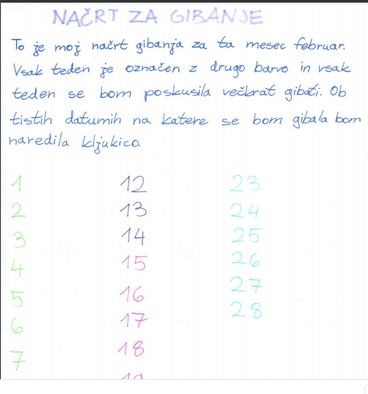 NAČRT ZA GIBANJE
To je moj načrt gibanja za ta mesec februar.
Vsak teden je označen z drugo barvo in vsak
teden se bom poskusila večkrat gibati. Ob
tistih datumih na katere se bom gibala bom
naredila kljukico.
1 12 23
2 13 24
3 14 25
4 15 26
5 16 27
6 17 28
7 18